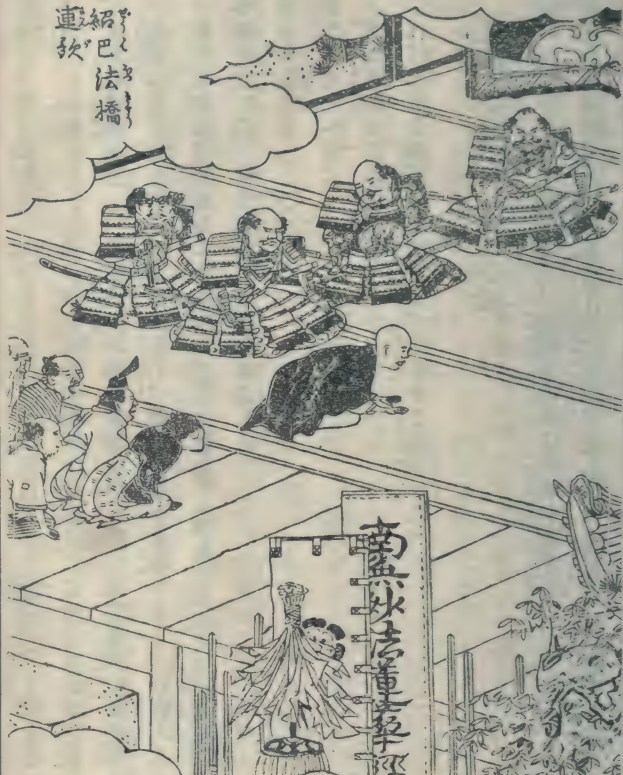 紹巴法橋
連歌
南無妙法蓮華經